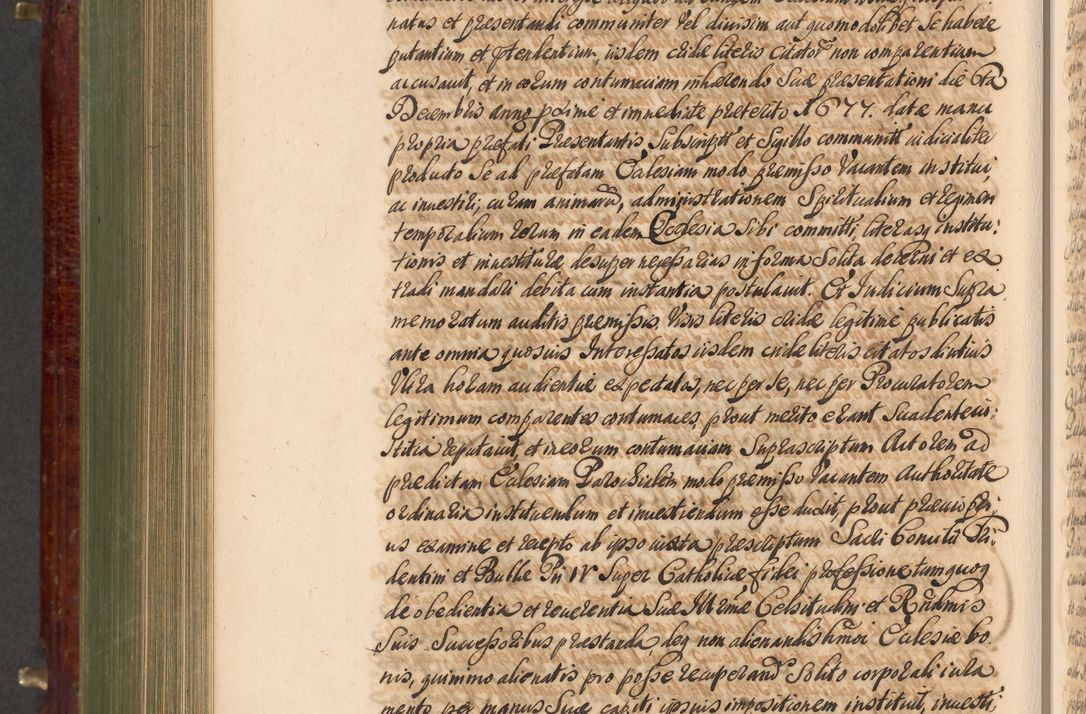 natus et præsentandi communiter vel divisim aut quomodolibet se habere
putantium et prætendentium, iisdem cridæ literis citatorũ non comparentium
accusavit, et in eorum contumaciam inhærendo suæ præsentationi die 1ma
Decembris anno proxime et immediate præterito 1677. datæ manu
propria præfati Præsentantis subscriptæ et Sigillo communitæ iudicialiter
producto se ad præfatam Ecclesiam modo præmisso vacantem institui,
ac investiri, curam animarũ, administrationem Spiritualium et regimen
temporalium rerum in eadem Ecclesia Sibi committi literasq institu:
tionis et investituræ desuper necessarias in forma Solita decerni et ex
tradi mandari debita cum instantia postulavit. Et Iudicium Supra
memoratum auditis præmissis, visis literis cridæ legitimè publicatis
ante omnia quosvis Interessatos iisdem cridæ literis citatos diutius
Ultra horam audientiæ expectatos, nec per se, nec per Procuratorem
legitimum comparentes contumaces, prout merito erant Suadente iu:
stitia reputavit, et in eorum contumaciam Suprascriptum Actorem ad
prædictam Ecclesiam Parochialem modo præmisso vacantem Authoritate
ordinaria instituendum et investiendum esse duxit, prout prævio pri,
us examine et recepto ab ipso iuxta præscriptum Sacri Concilii Tri,
dentini et Bullæ Pii IV Super Catholicæ fidei professione tum quoq
de obedientia et reverentia Suæ Illr̃mæ Celsitudini et Rñdmis
Suis Successoribus præstanda, deq non alienandis hm̃oi Ecclesiæ bo
nis, quinimo alienatis pro posse recuperandis Solito corporali iura
mento per manus Suæ capiti ipsius impositionem instituit, investi,